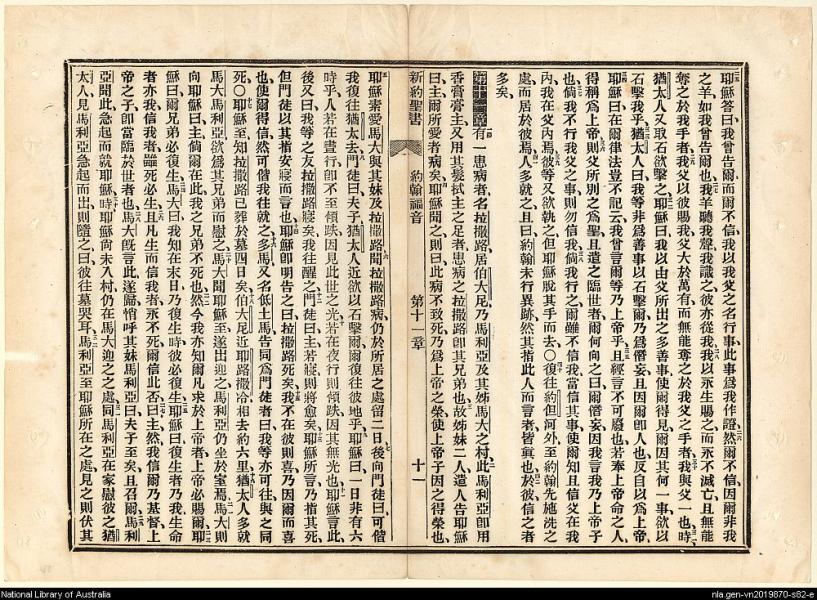 耶穌答曰、我曾告爾、而爾不信、我以我父之名行事、此事爲我作證、然爾不信、因爾非我
之羊、如我曾告爾也、我羊聽我聲、我識之、彼亦從我、我以永生賜之、而永不滅亡、且無能
奪之於我手者、我父以彼賜我、父大於萬有、而無能奪之於我父之手者、我與父一也、時
猶太人又取石欲擊之、耶穌曰、我以由父所出之多善事、使爾得見、爾因其何一事、欲以
石擊我乎、猶太人曰、我等非爲善事以石擊爾、乃爲僭妄、且因爾卽人也、反自以爲上帝、
耶穌曰、在爾律法、豈不記云、我曾言爾等乃上帝乎、且經言不可廢也、若奉上帝命之人、
得稱爲上帝、則父所別之爲聖、且遣之臨世者、爾何向之曰、爾僭妄、因我言我乃上帝子
也、倘我不行我父之事、則勿信我、倘我行之、爾雖不信我、當信其事、使爾知且信父在我
內、我在父內焉、彼等又欲執之、但耶穌脫其手而去、○復往約但河外、至約翰先施洗之
處、而居於彼焉、人多就之、且曰、約翰未行異跡、然其指此人而言者、皆眞也、於彼信之者
多矣、
第十一章 有一患病者、名拉撒路、居伯大尼、乃馬利亞及其姊馬大之村、此馬利亞卽用
香膏膏主、又用其髮拭主之足者、患病之拉撒路、卽其兄弟也、故姊妹二人、遣人告耶穌
曰、主、爾所愛者病矣、耶穌聞之則曰、此病不致死、乃爲上帝之榮、使上帝子因之得榮也、
新約聖書 約翰福音 第十一章 十一
耶穌素愛馬大、與其妹及拉撒路、聞拉撒路病、仍於所居之處、留二日、後向門徒曰、可偕
我復往猶太去、門徒曰、夫子、猶太人近欲以石擊爾、爾復往彼地乎、耶穌曰、一日非有六
時乎、人若在晝行、卽不至傾跌、因見此世之光、若在夜行、則傾跌、因其無光也、耶穌言此、
後又曰、我等之友拉撒路寢矣、我往醒之、門徒曰、主、若寢、則將愈矣、耶穌所言、乃指其死、
但門徒以其指安寢而言也、耶穌卽明告之曰、拉撒路死矣、我不在彼則喜、乃因爾而喜
也、使爾得信、然可偕我往就之、多馬又名低土馬、告同爲門徒者曰、我等亦可往、與之同
死、○耶穌至、知拉撒路已葬於墓四日矣、伯大尼近耶路撒冷、相去約六里、猶太人多就
馬大馬利亞、欲爲其兄弟而慰之、馬大聞耶穌至、遂出迎之、馬利亞仍坐於室焉、馬大則
向耶穌曰、主、倘爾在此、我之兄弟不死也、然今我亦知爾凡求於上帝者、上帝必賜爾、耶
穌曰、爾兄弟必復生、馬大曰、我知在末日乃復生時、彼必復生、耶穌曰、復生者乃我、生命
者亦我、信我者、雖死必生、且凡生而信我者、永不死、爾信此否、曰、主、然、我信爾乃基督、上
帝之子、卽當臨於世者也、馬大旣言此、遂歸、悄呼其妹馬利亞曰、夫子至矣、且召爾、馬利
亞聞此、急起而就耶穌、時耶穌尙未入村、仍在馬大迎之之處、同馬利亞在家慰彼之猶
太人、見馬利亞急起而出、則隨之、曰、彼往墓哭耳、馬利亞至耶穌所在之處、見之則伏其
National Library of Australia
nla.gen-vn2019870-s82-e